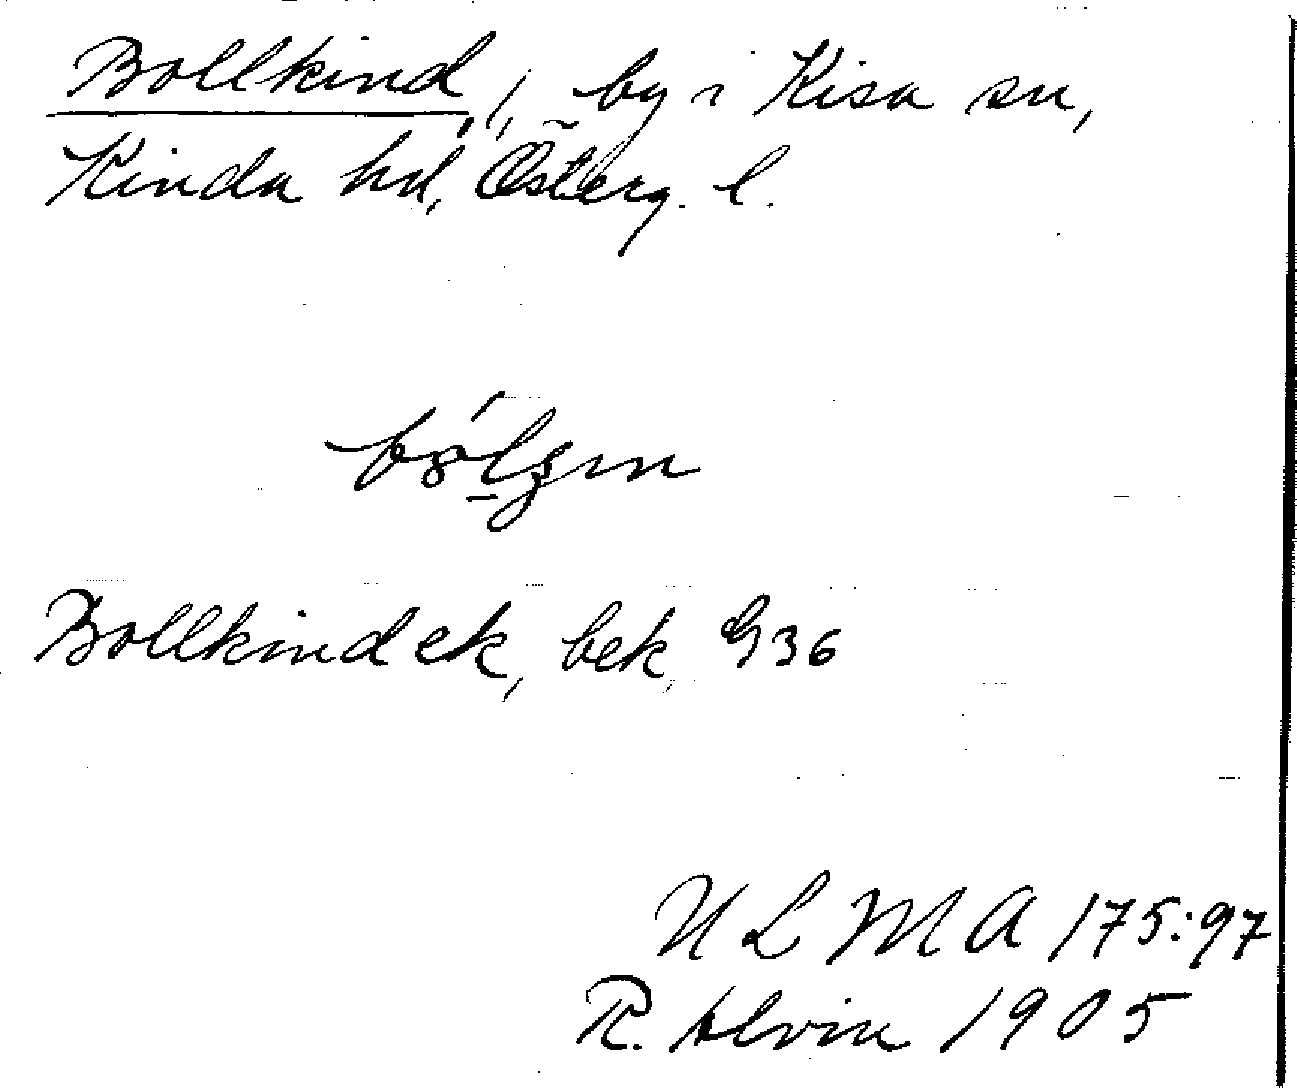 Bollkind, /, by i Kisa sn,
Kinda hd, Österg. l.
Bollkind ek, bek, G36
ULMA 175:97
R. Alvin 1905